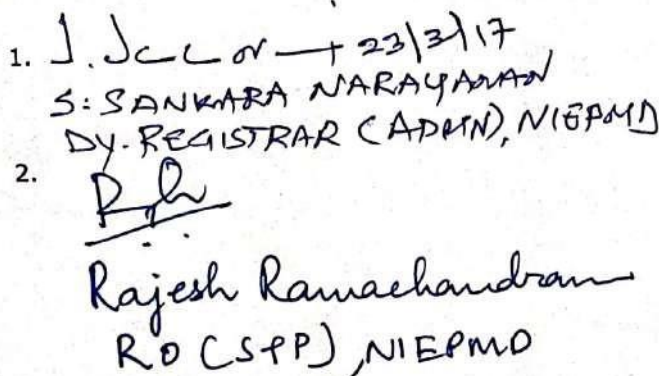 1. 23/3/17
S. SANKARA NARAYANAN
DY. REGISTRAR (ADMN), NIEPMD
2.
Rajesh Ramachandran
RO (S&PP), NIEPMD